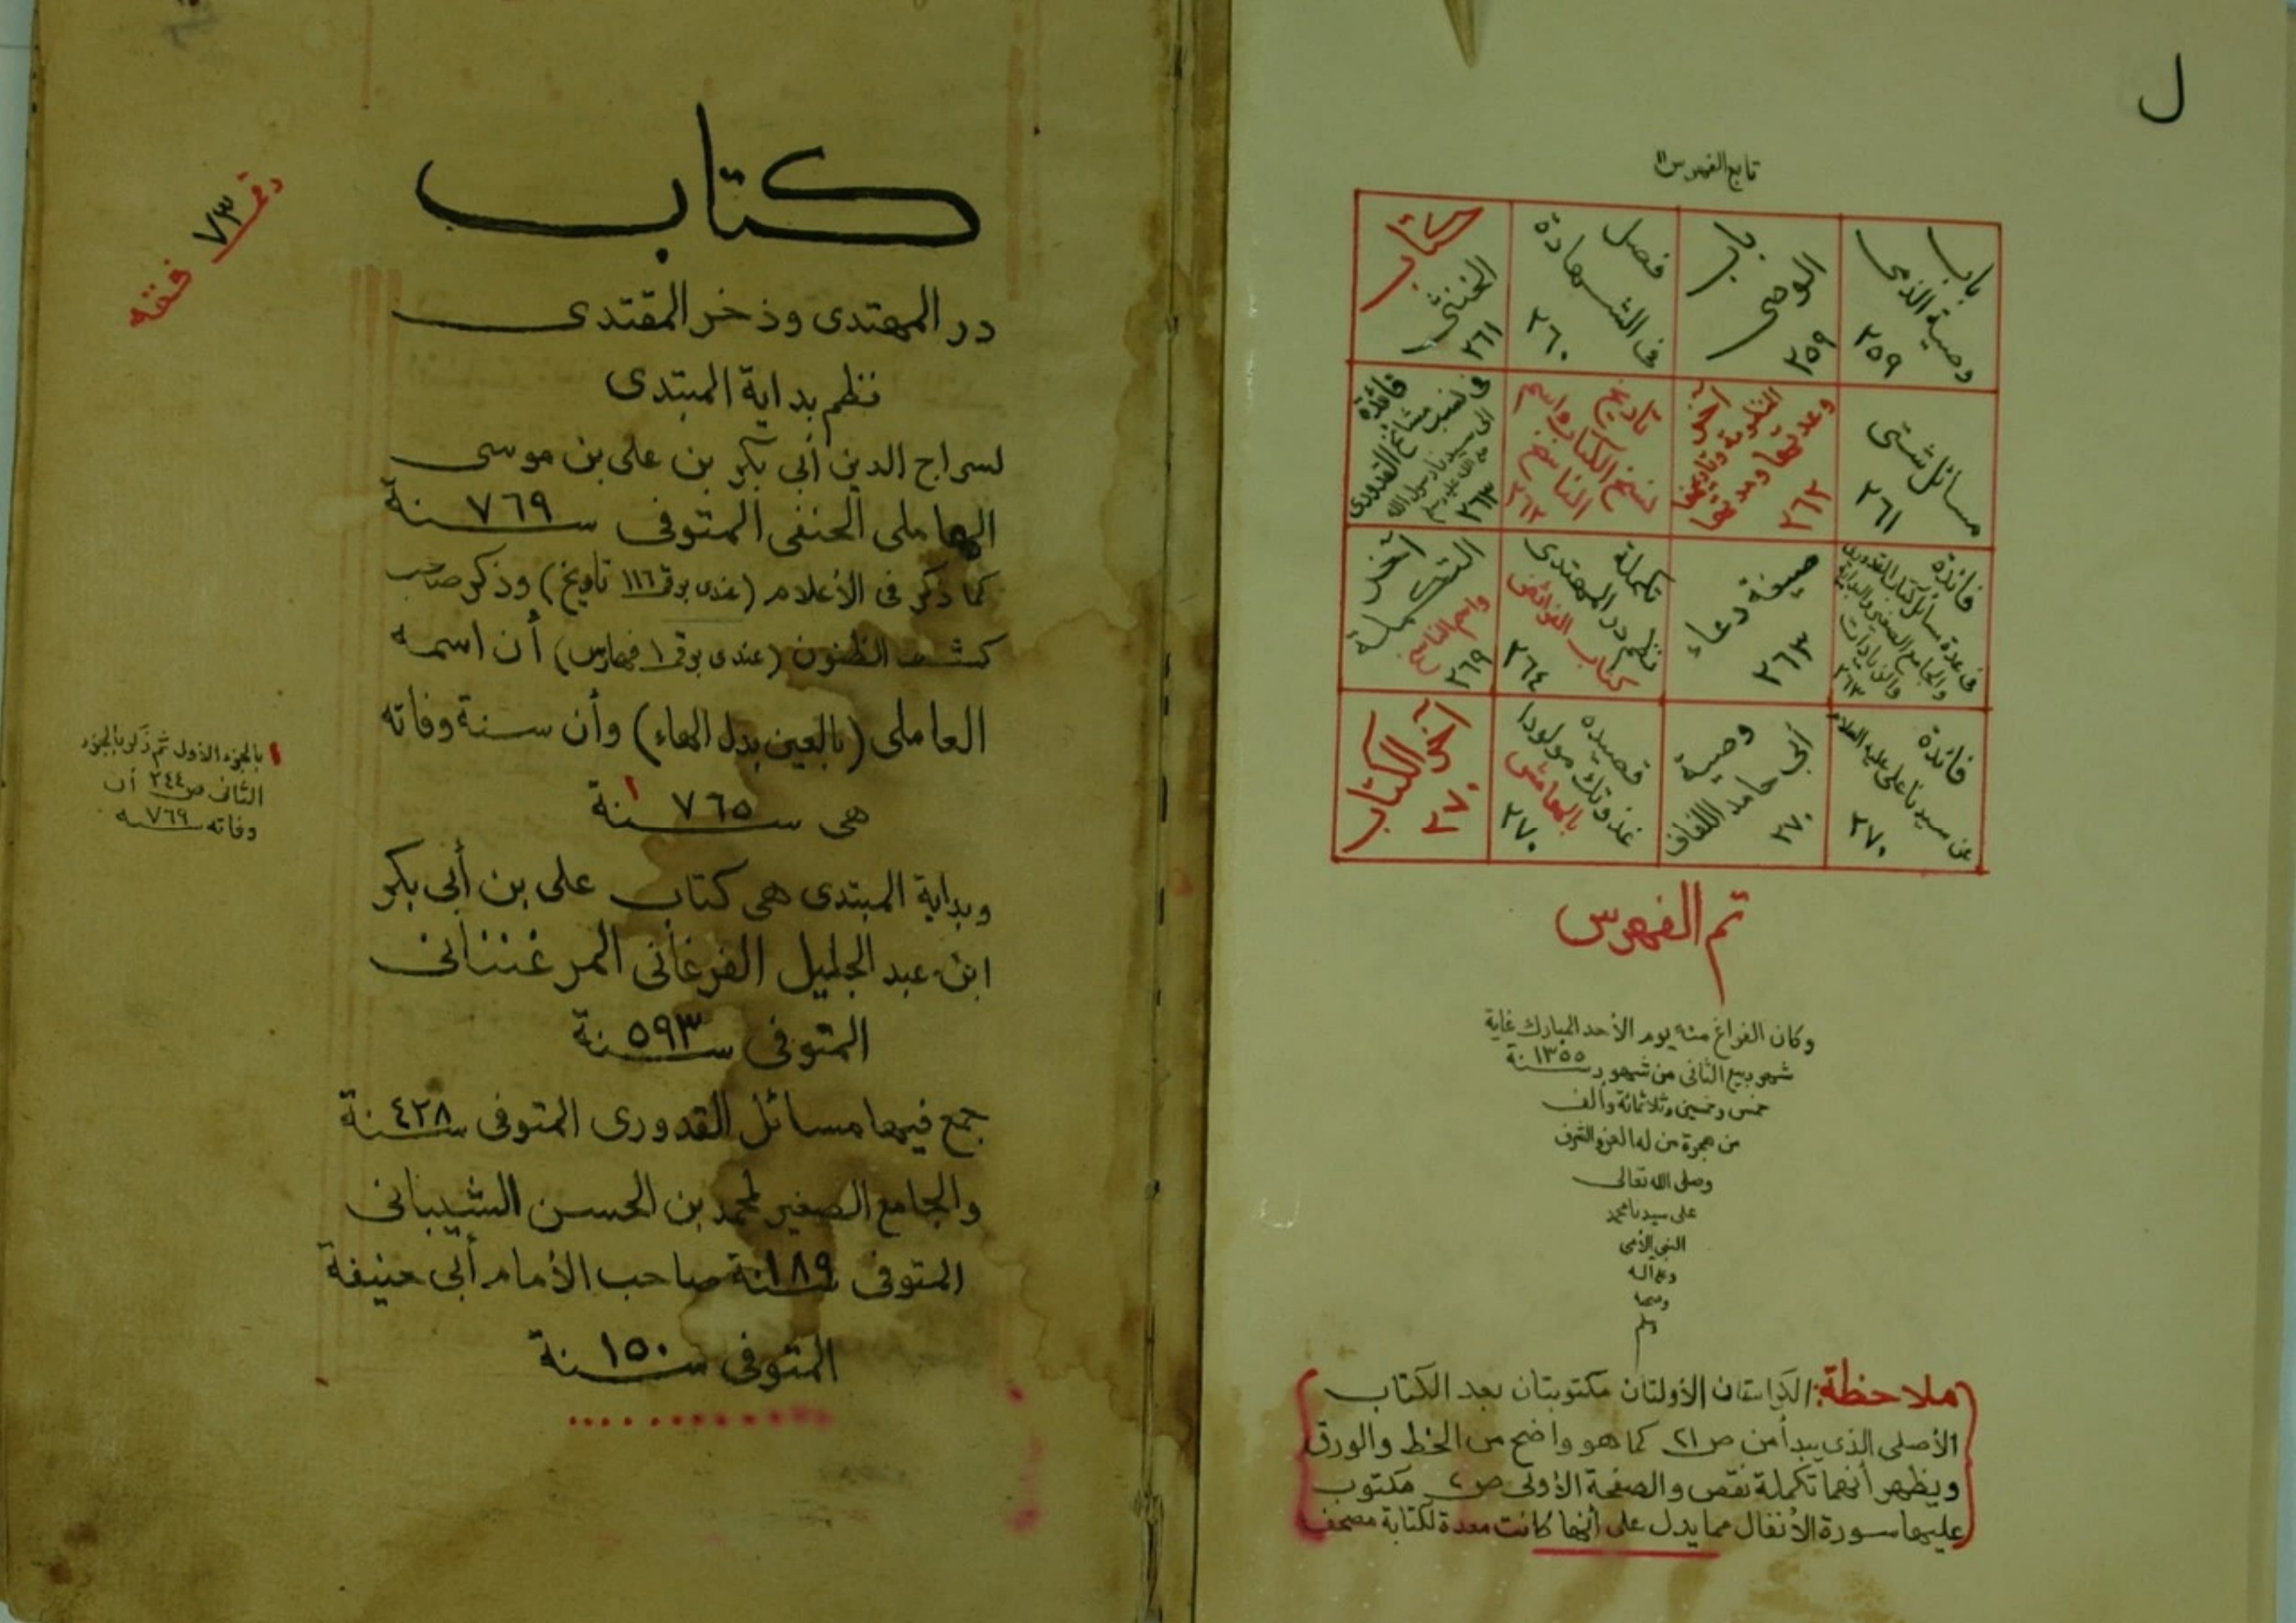 ل
تابع الفهرس
باب
وصية الذمى
٢٥٩
باب
الوصى
٢٥٩
فصل
فى الشهادة
٢٦٠
كتاب
الخنثى
٢٦١
مسائل شتى
٢٦١
٢٦٢
تاريخ
نسخ الكتاب واسم
الناسخ
٢٦٢
فائدة
٢٦٣
فائدة
فى عدة مسائل كتاب القدورى
والجامع الصغير والبداية
والزيادات
٢٦٣
صيغة دعاء
٢٦٣
تكملة
نظم در المهتدى
كتاب الفرائض
٢٦٤
آخر
التكملة
٢٦٩
فائدة
عن سيدنا على عليه السلام
٢٧٠
وصية
أبى حامد اللفاف
٢٧٠
قصيدة
غذوتك مولودا
بالهامش
٢٧٠
آخر
الكتاب
٢٧٠
تم الفهرس
وكان الفراغ منه يوم الأحد المبارك غاية
شهر ربيع الثانى من شهور سنة ١٣٥٥
خمس وخمسين وثلاثمائة وألف
من هجرة من له العز والشرف
وصلى الله تعالى
على سيدنا محمد
النبى الأمى
وعلى آله
وصحبه
وسلم
ملاحظة: الكراستان الأولتان مكتوبتان بعد الكتاب
الأصلى الذى يبدأ من ص ٢١ كما هو واضح من الخط والورق
ويظهر أنهما تكملة نقص والصفحة الأولى ص ٢ مكتوب
عليها سورة الأنفال مما يدل على أنها كانت معدة لكتابة مصحف
رقم ٧٣ فقه
كتاب
در المهتدى وذخر المقتدى
نظم بداية المبتدى
لسراج الدين أبى بكر بن على بن موسى
الهاملى الحنفى المتوفى سنة ٧٦٩
كما ذكر فى الأعلام (عندى برقم ١١٦ تاريخ) وذكر صاحب
كشف الظنون (عندى برقم ١ فهارس) أن اسمه
العاملى (بالعين بدل الهاء) وأن سنة وفاته
هى سنة ٧٦٥ ١
وبداية المبتدى هى كتاب على بن أبى بكر
ابن عبد الجليل الفرغانى المرغنانى
المتوفى سنة ٥٩٣
جمع فيها مسائل القدورى المتوفى سنة ٤٢٨
والجامع الصغير لمحمد بن الحسن الشيبانى
المتوفى سنة ١٨٩ صاحب الأمام أبى حنيفة
المتوفى سنة ١٥٠
١ بالجزء الأول ثم ذكر بالجزء
الثانى ص ٢٤٤ أن
وفاته سنه ٧٦٩